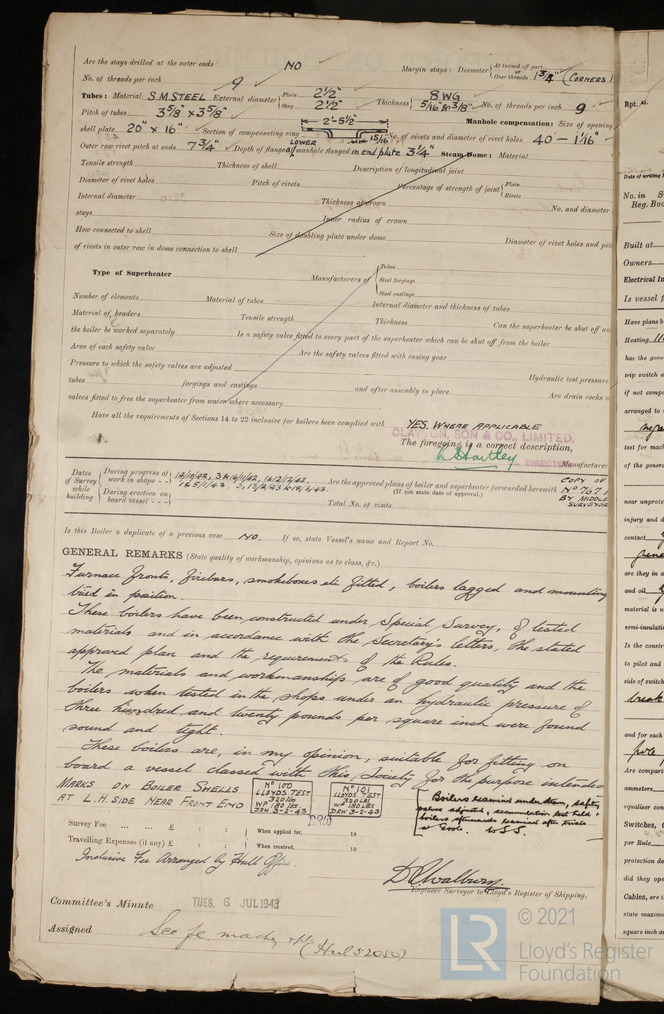 Are the stays drilled at the outer ends NO Margin stays: Diameter { At turned off part, or Over threads 1 3/4" (CORNERS)
No. of threads per inch 9
Tubes: Material S.M. STEEL External diameter { Plain 2 1/2" Stay 2 1/2" Thickness { 8 WG 5/16" & 3/8" No. of threads per inch 9
Pitch of tubes 3 5/8" x 3 5/8" Manhole compensation: Size of opening
shell plate 20" x 16" Section of compensating ring 2'-5 1/2" 15/16" No. of rivets and diameter of rivet holes 40 - 1 1/16"
Outer row rivet pitch at ends 7 3/4" Depth of flange if manhole flanged LOWER in end plate 3 1/4" Steam Dome: Material
Tensile strength Thickness of shell Description of longitudinal joint
Diameter of rivet holes Pitch of rivets Percentage of strength of joint { Plate Rivets
Internal diameter Thickness of crown No. and diameter
stays Inner radius of crown
How connected to shell Size of doubling plate under dome Diameter of rivet holes and pitch
of rivets in outer row in dome connection to shell
Type of Superheater Manufacturers of { Tubes Steel forgings Steel castings
Number of elements Material of tubes Internal diameter and thickness of tubes
Material of headers Tensile strength Thickness Can the superheater be shut off and
the boiler be worked separately Is a safety valve fitted to every part of the superheater which can be shut off from the boiler
Area of each safety valve Are the safety valves fitted with easing gear
Pressure to which the safety valves are adjusted Hydraulic test pressure
tubes forgings and castings and after assembly in place Are drain cocks or
valves fitted to free the superheater from water where necessary
Have all the requirements of Sections 14 to 22 inclusive for boilers been complied with YES. WHERE APPLICABLE
CLAYTON, SON & CO., LIMITED,
The foregoing is a correct description,
L. Hartley DIRECTOR Manufacturer
Dates of Survey while building { During progress of work in shops - - During erection on board vessel - - -
Are the approved plans of boiler and superheater forwarded herewith (If not state date of approval.) COPY OF No 7671 BY MIDDLE SURVEYOR
Total No. of visits
Is this Boiler a duplicate of a previous case NO. If so, state Vessel's name and Report No.
GENERAL REMARKS (State quality of workmanship, opinions as to class, &c.)
Furnace fronts, firebars, smokeboxes etc fitted, boilers lagged and mounting
tried in position.
These boilers have been constructed under Special Survey, of tested
materials and in accordance with the Secretary's letters, the stated
approved plan and the requirements of the Rules.
The materials and workmanship are of good quality and the
boilers when tested in the shops under an hydraulic pressure of
three hundred and twenty pounds per square inch were found
sound and tight.
These boilers are, in my opinion, suitable for fitting on
board a vessel classed with this Society for the purpose intended
MARKS ON BOILER SHELLS
AT L.H. SIDE NEAR FRONT END
No 100
LLOYDS TEST
320 lbs
WP 180 lbs
DRW 3-2-43
No 101
LLOYDS TEST
320 LBS
WP 180 LBS
DRW 3-2-43
Boilers examined under steam, safety
valves adjusted, accumulation test held &
boilers afterwards examined after trials
at Goole.
Survey Fee ... ... £ : : When applied for, 19
Travelling Expenses (if any) £ : : When received, 19
Inclusive Fee Arranged by Hull Office.
Engineer Surveyor to Lloyd's Register of Shipping.
Committee's Minute TUES. 6 JUL 1943
Assigned See fe machy rpt
(Hul 52050)
Rpt.
Date of writing
No. in
Reg. Book
Built at
Owners
Electrical In
Is vessel f
Have plans b
Heating
has the gover
trip switch a
if not compo
arranged to
test for mach
of the genera
near unprote
injury and d
contact
are they in a
and oil
material is u
semi-insulati
Is the constr
to pilot and
side of switch
break
and for each
pole
Are compart
ammeters
equaliser con
Switches, C
per Rule
protection de
did they ope
Cables, are t
state maximum
square inch a
© 2021
LR
Lloyd's Register
Foundation